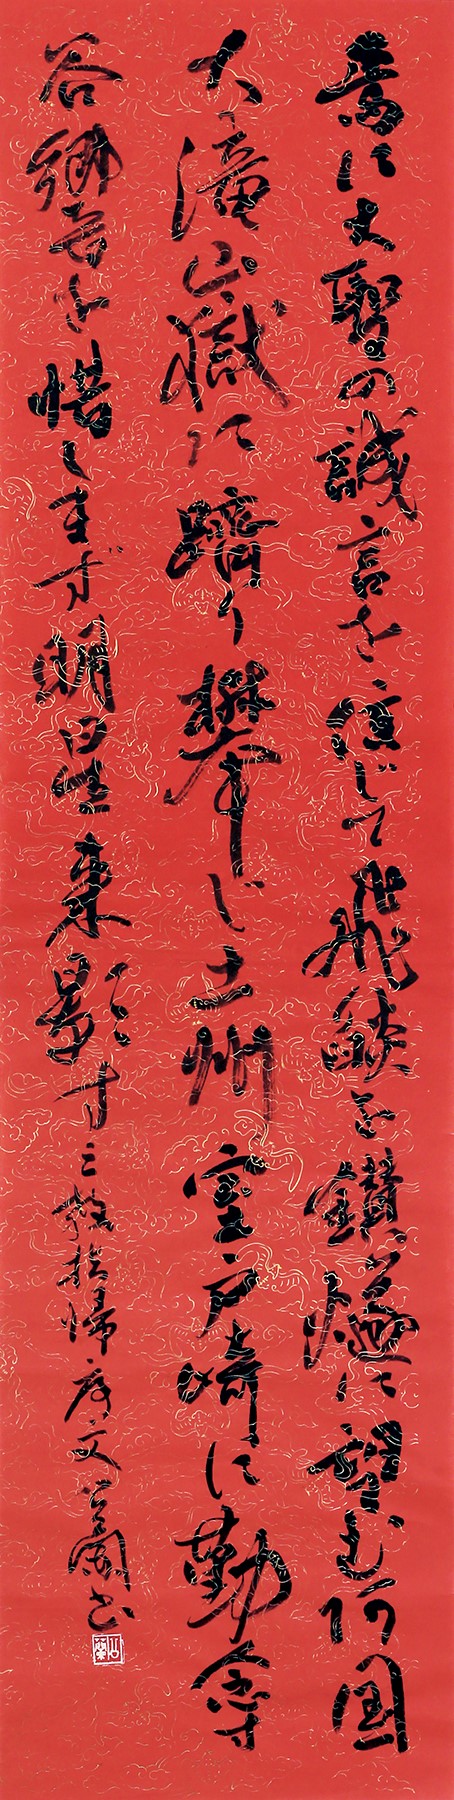 焉に大聖の誠言を信じて飛燄を鑽燧に望む阿国
大滝山嶽に躋り攀じ土州室戸崎に勤念す
谷響を惜しまず明星来影す三教指帰序文 蘭書